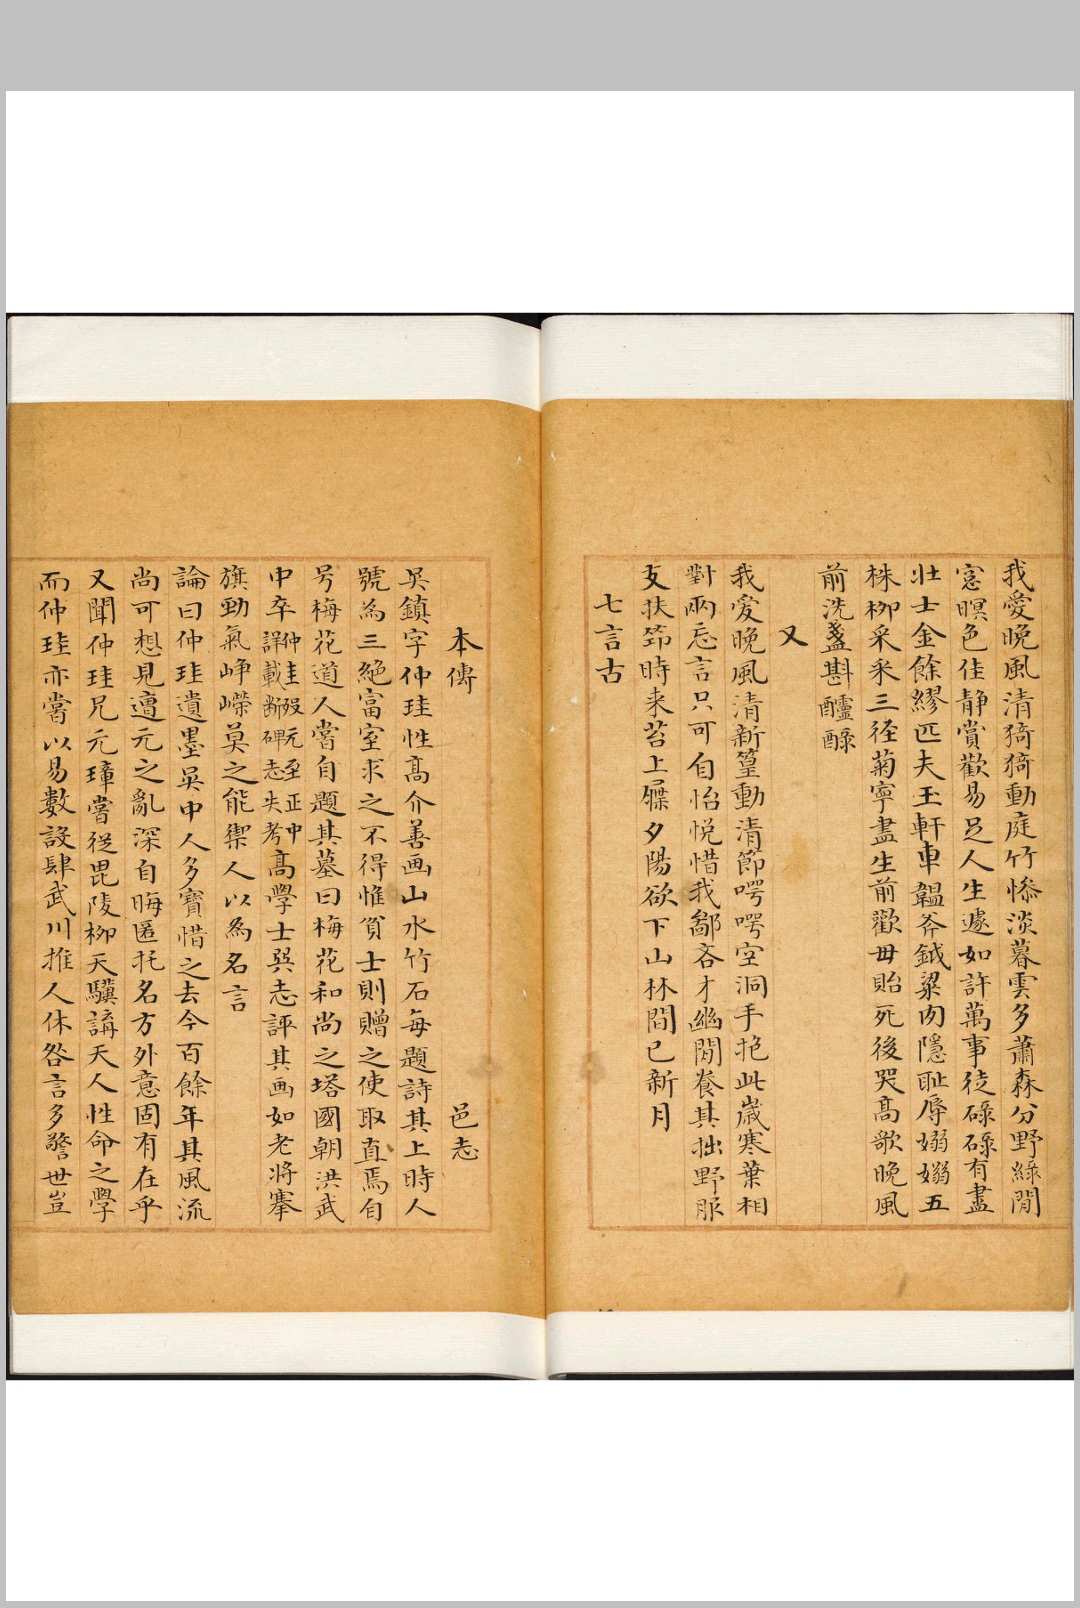 我愛晚風清猗猗動庭竹慘淡暮雲多蕭森分野綠閒
窓暝色佳靜賞歡易足人生遽如許萬事徒碌碌有盡
壯士金餘繆匹夫玉軒車韞斧鉞粱肉隱耻辱嫋嫋五
株柳采采三径菊寧盡生前歡毋貽死後哭髙歌晚風
前洗盞斟醽醁
又
我愛晚風清新篁動清節㗁㗁空洞手抱此嵗寒葉相
對兩忘言只可自怡悦惜我鄙吝才幽閒養其拙野服
支扶筇時来苔上屧夕陽欲下山林間已新月
七言古
本傳　邑志
吳鎮字仲珪性髙介善画山水竹石每題詩其上時人
號為三絕富室求之不得惟貧士則贈之使取直焉自
号梅花道人嘗自題其墓曰梅花和尚之塔國朝洪武
中卒仲圭殁元至正中詳載斷碑志失考髙學士巽志評其画如老將搴
旗勁氣崢嶸莫之能禦人以為名言
論曰仲珪遺墨吳中人多寳惜之去今百餘年其風流
尚可想見遭元之亂深自晦匿托名方外意固有在乎
又聞仲珪兄元璋嘗從毘陵柳天驥講天人性命之學
而仲珪亦嘗以易數設肆武川推人休咎言多警世豈